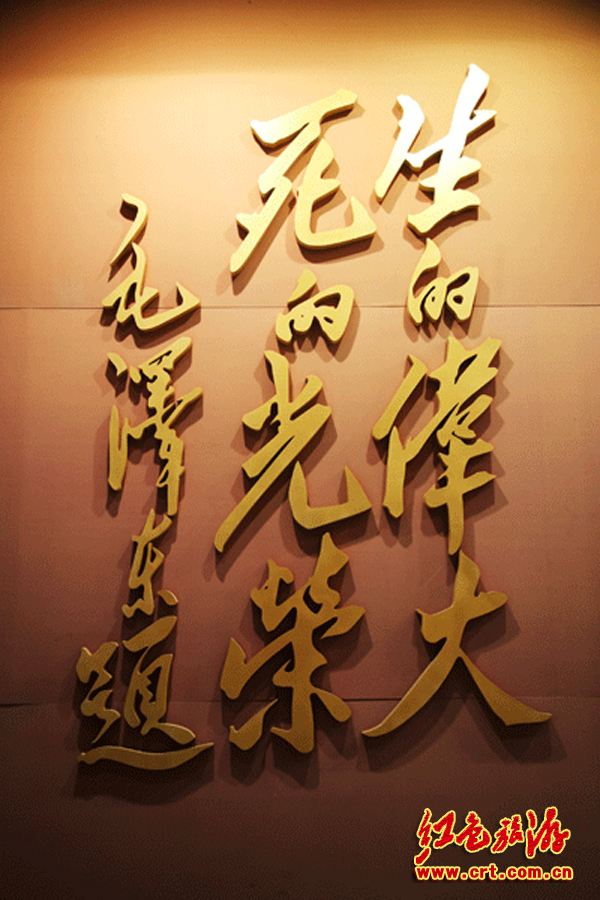 生的偉大
死的光榮
毛澤东題
红色旅游
www.crt.com.cn